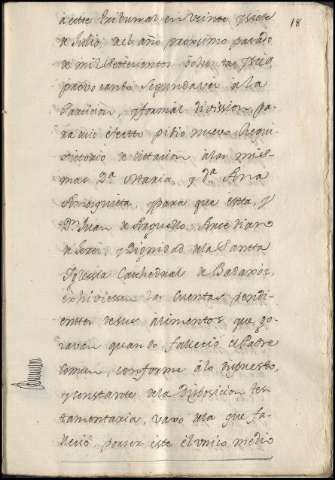 18
à este Tribunal en veinte y siete
de Julio del año proximo pasado
de mil setecientos ochenta y seis
provocando segunda vez à la
Particion, y formal division pa
ra cuio efecto pidio nuevo Requi
sitorio de citacion à las mis
mas Dª Maria, y Dª Ana
y para que esta, y
Dn Juan de Arguello, Arcediano
de Xerez y Dignidad de la Santa
Iglesia Cathedral de Badajoz,
exhiviesen las cuentas pendi
entes de sus alimentos, que go
zaven quando fallecio el Padre
comun, conforme à lo dispuesto,
y constante de la Disposicion tes
tamentaria, vajo de la que fa
llecio, por ser este el unico medio